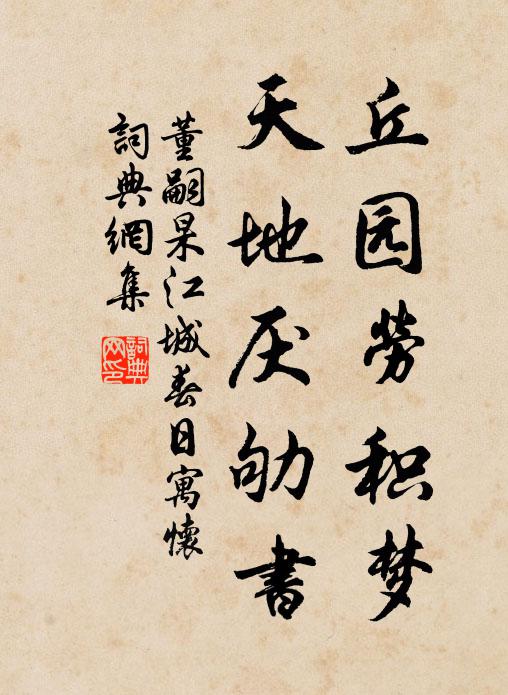 丘园勞积梦
天地厌劬書
董嗣杲江城春日寓懷
詞典網集
詞典网印